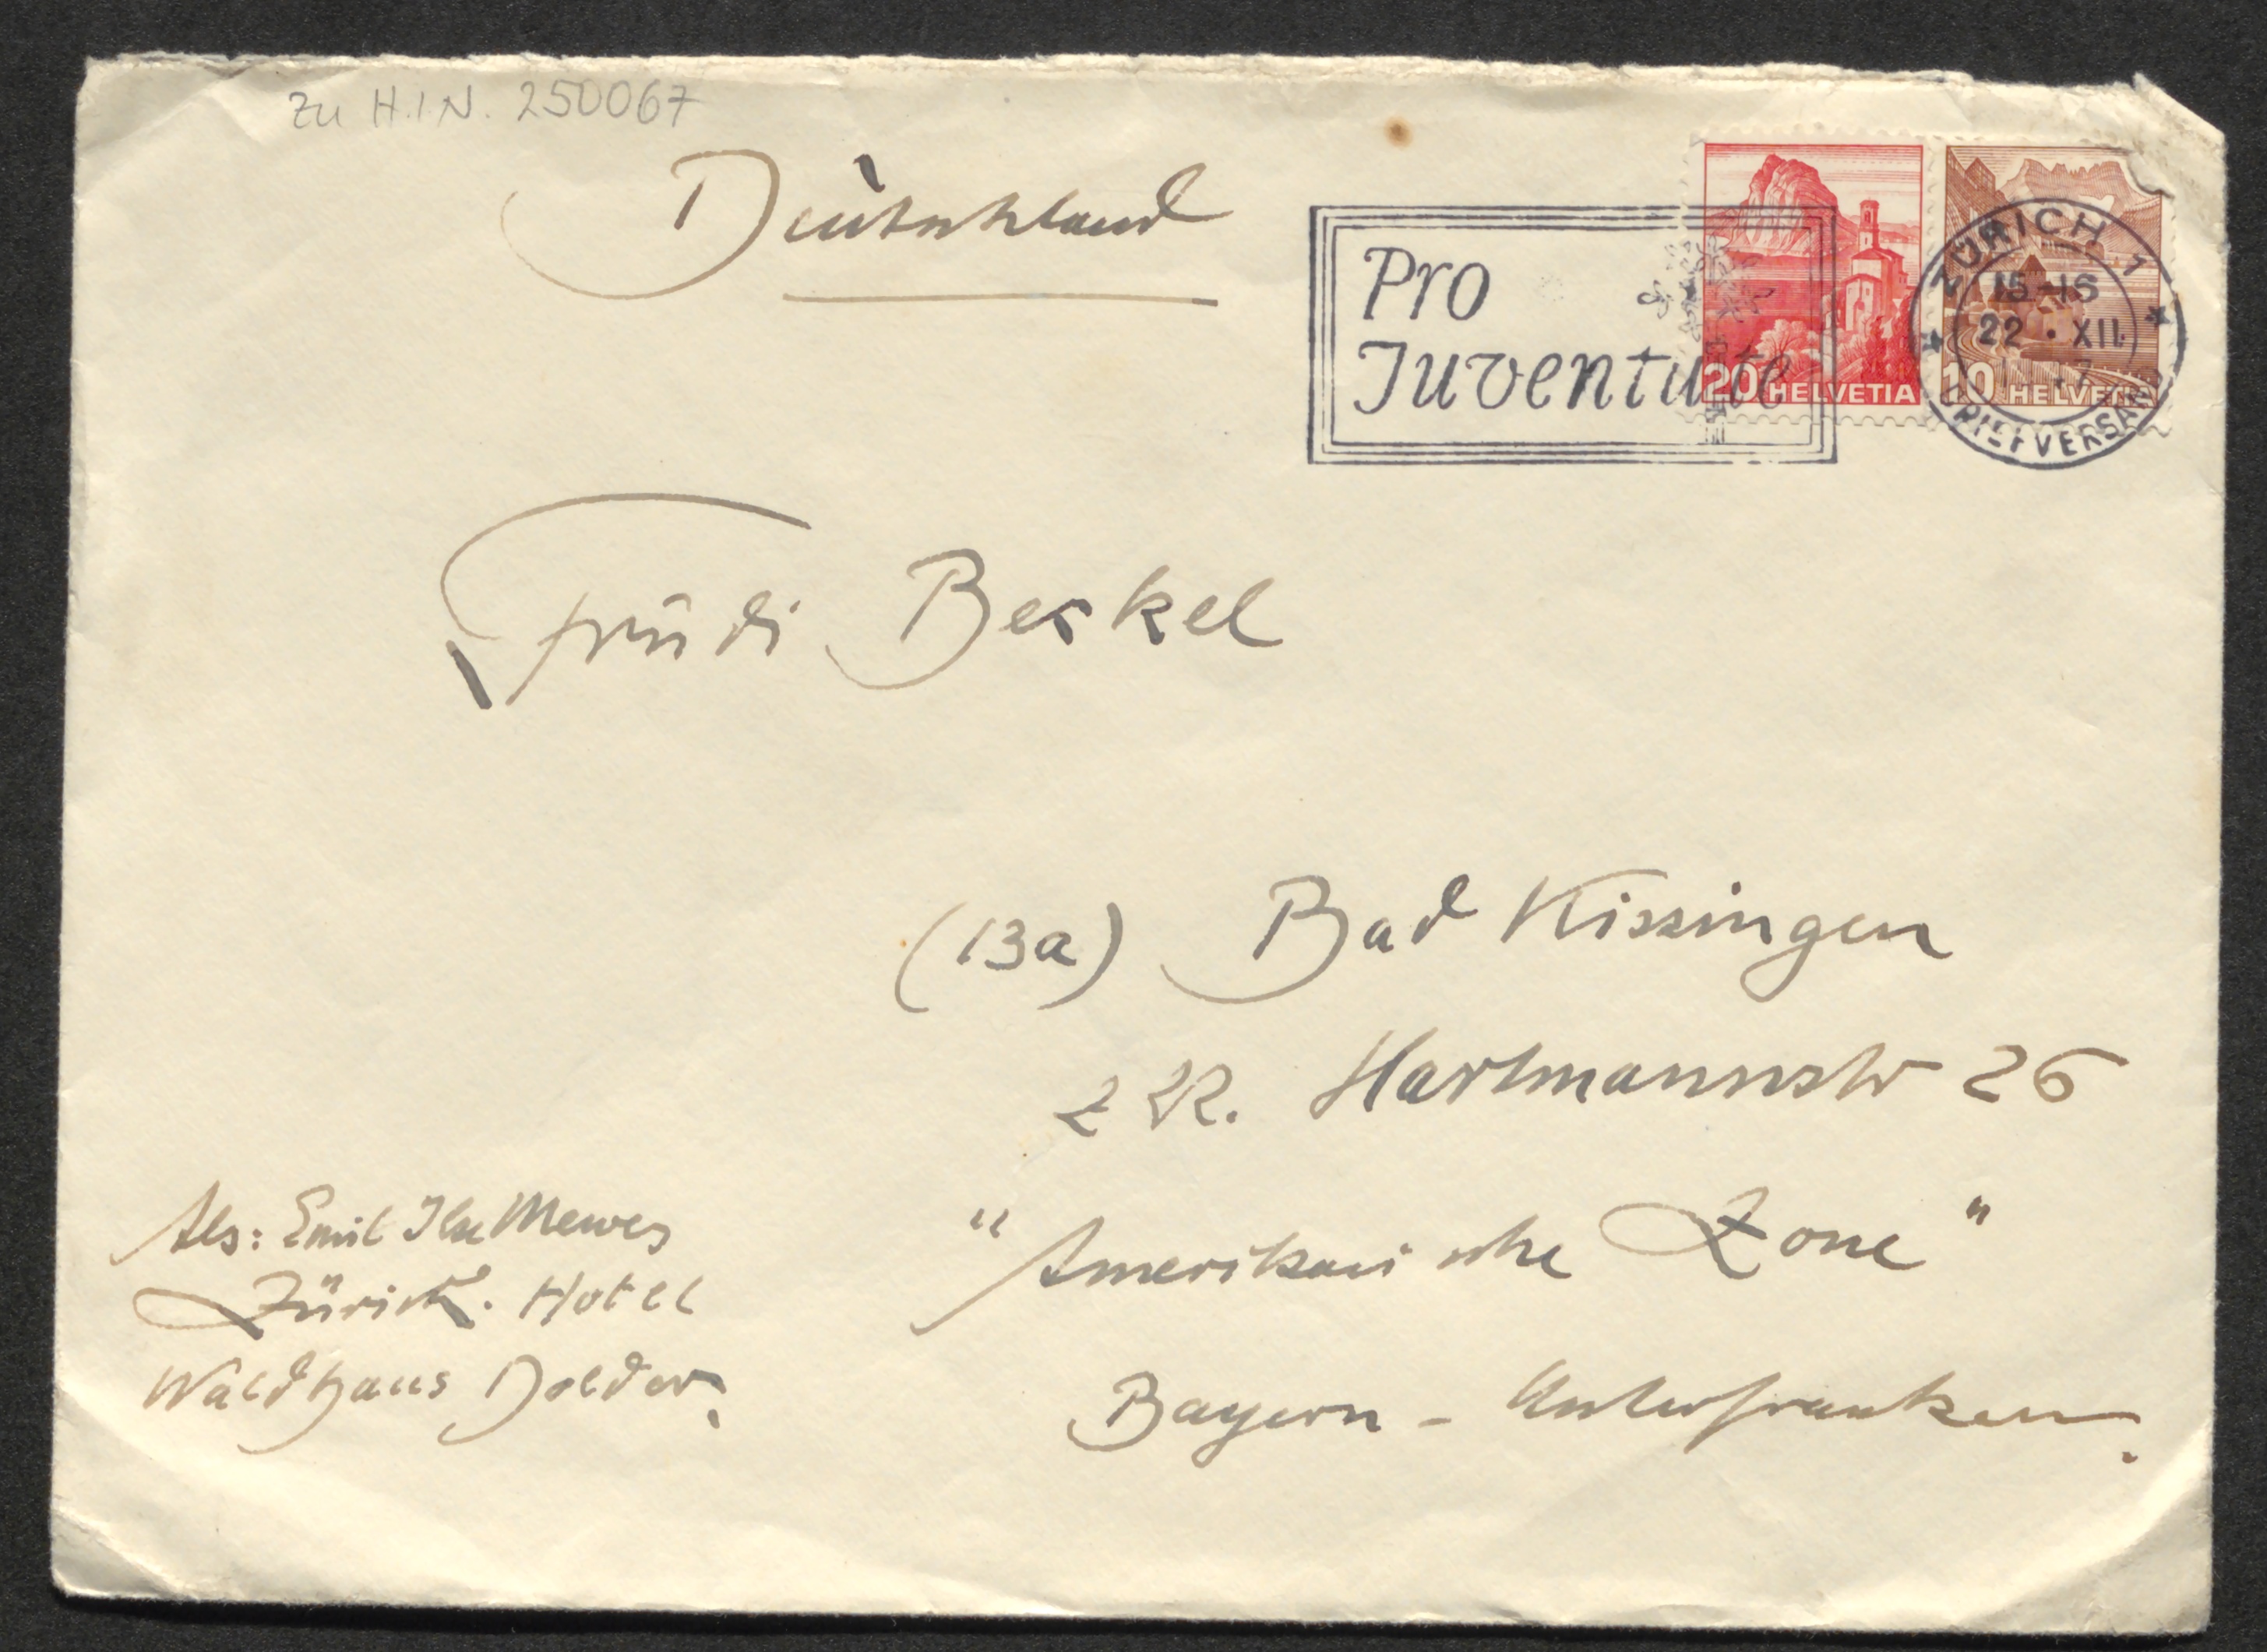 zu H.I.N. 250067
Deutschland
Pro
Juventute
20 HELVETIA
10 HELVETIA
ZÜRICH 1
15-16
22 . XII.
BRIEFVERSAND
Trüdi Beskel
(13a) Bad Kissingen
Hartmannstr 26
"Amerikanische Zone"
Bayern - Unterfranken.
Abs: Emil Mewes
Zürich. Hotel
Waldhaus Dolder.